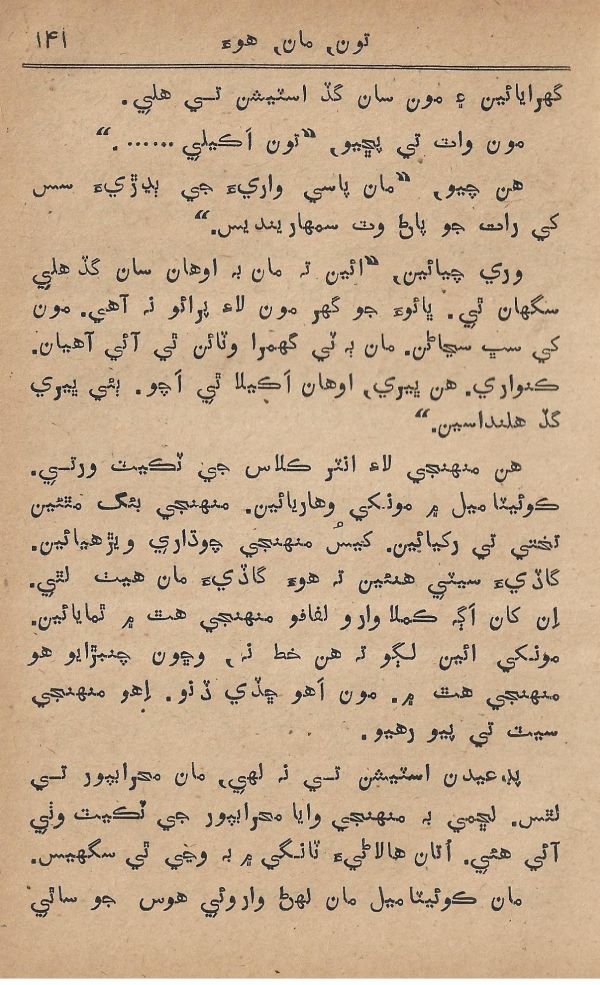 تون, مان, هوءَ ۱۴۱
گهرايائين ۽ مون سان گڏ اسٽيشن تــي هلي.
مون واٽ تي پڇيو, ”تون اَڪيلي .......“
هن چيو, ”مان پاسي واريءَ جي ٻڍڙيءَ سس
کي رات جو پاڻ وٽ سمهارينديس.“
وري چيائين, ”ائين تہ مان بہ اوهان سان گڏ هلي
سگهان ٿي. ڀائوءَ جو گهر مون لاءِ پرائو نہ آهي. مون
کي سڀ سڃاڻن. مان ٻہ ٽي گهمرا وٽائن ٿي آئي آهيان.
ڪنواري. هن ڀيري, اوهان اَڪيلا ٿي اَچو. ٻئي ڀيري
گڏ هلنداسين.“
هن منهنجي لاءِ انٽر ڪلاس جي ٽڪيٽ ورتــي.
ڪوئيٽا ميل ۾ مونکي وهاريائين. منهنجي بئگ مٿئين
تختي تي رکيائين. کيسُ منهنجي چوڌاري ويڙهيائين.
گاڏيءَ سيٽي هنئين تہ هوءَ گاڏيءَ مان هيٺ لٿي.
اِن کان اَڳہ ڪملا وارو لفافو منهنجي هٿ ۾ ٿمايائين.
مونکي ائين لڳو تہ هن خط نہ, وڇون چنبڙايو هو
منهنجي هٿ ۾. مون اَهو ڇڏي ڏنو. اِهو منهنجي
سيٽ تي پيو رهيو.
پڊعيدن اسٽيشن تــي نہ لهي, مان محرابپور تــي
لٿس. لڇمي بہ منهنجي وايا محرابپور جي ٽڪيٽ وٺي
آئي هئي. اَتان هالاڻيءَ ٽانگي ۾ بہ وڃي ٿي سگهيس.
مان ڪوئيٽا ميل مان لهڻ وارو ئي هوس جو ساٿي